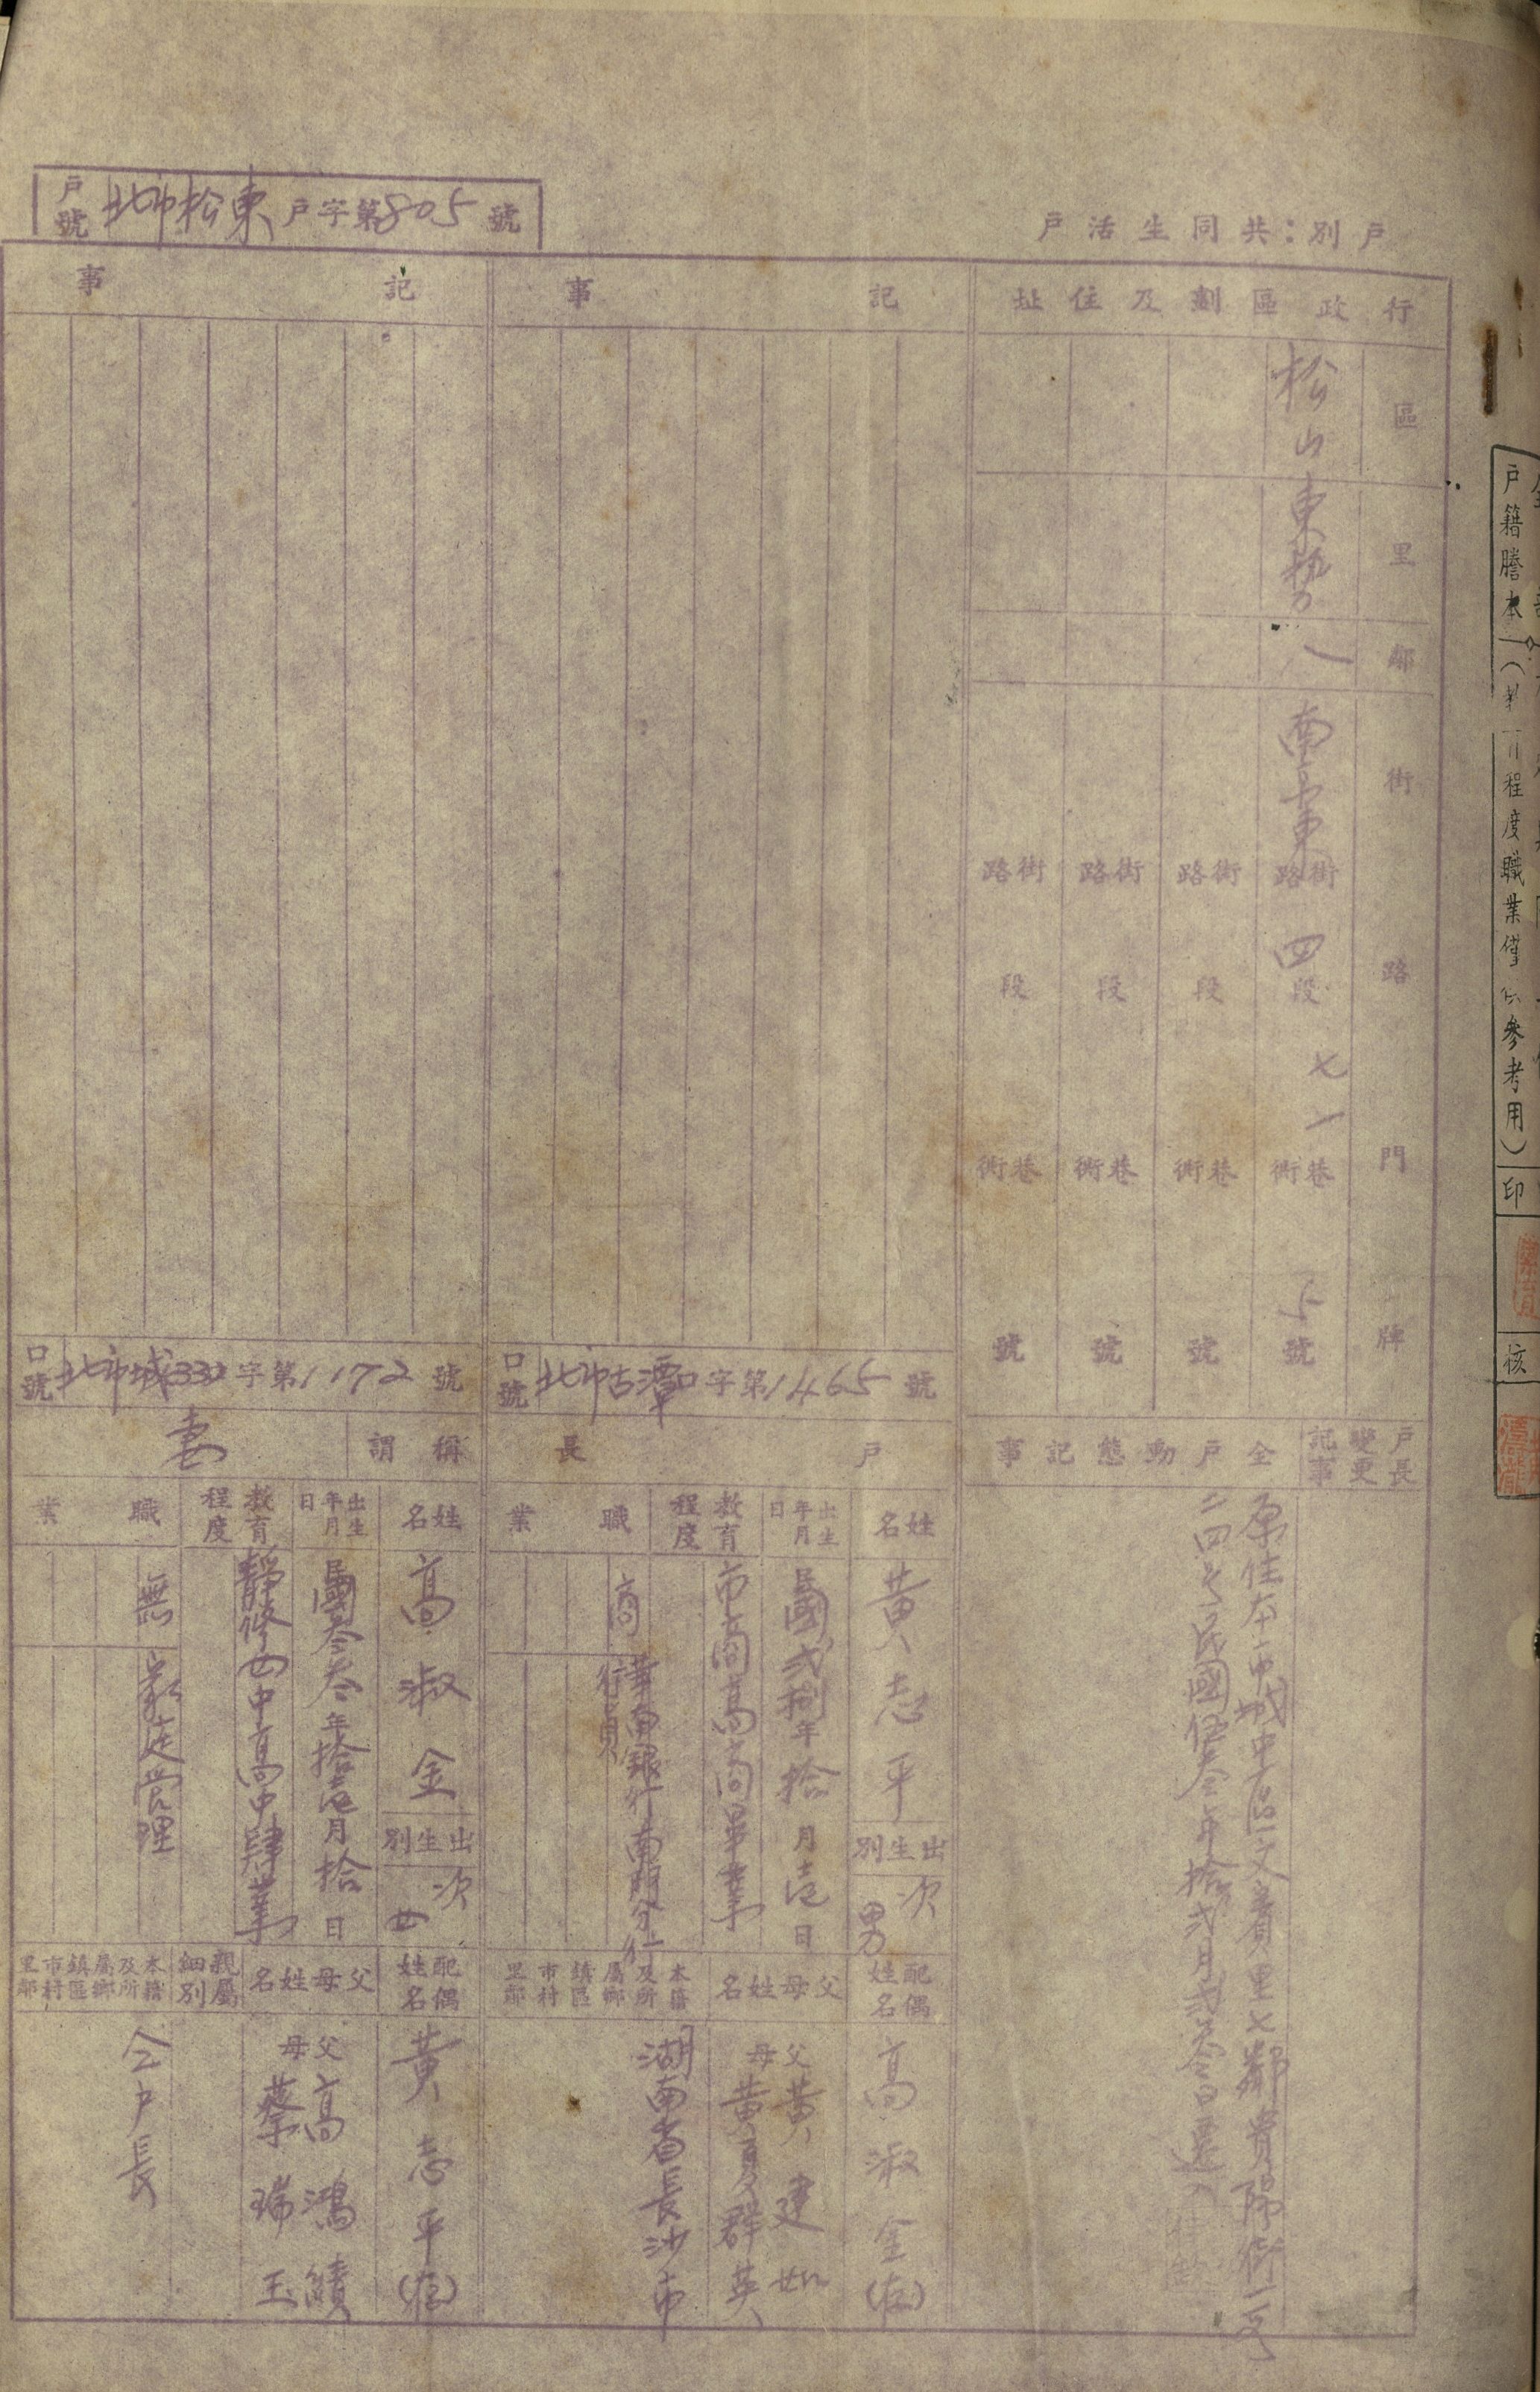 戶號 北市松東 戶字第805號
戶別：共同生活戶
行政區劃及住址
區 里 鄰 街 路 門 牌
松山
東勢
八
南京東 街路
四段
七一 巷衖
5 號
街路 段 巷衖 號
街路 段 巷衖 號
街路 段 巷衖 號
戶長變更記事
全戶動態記事
原住本市城中區文
里七鄰貴陽街一
二四號民國伍叁年拾弍月弍叁日遷入
記事
口號 北市古潭口字第1465號
戶長
姓名
黃志平
出生別
次男
出生年月日
民國弍捌年拾月壱日
教育程度
市商高商畢業
職業
商
華南銀行南門分行
行員
配偶姓名
高淑金(存)
父母姓名
父 黃建
母 黃夏群英
本籍及所屬鄉鎮區市村里鄰
湖南省長沙市
記事
口號 北市城332字第1172號
稱謂
妻
姓名
高淑金
出生別
次女
出生年月日
民國叁叁年拾壱月拾日
教育程度
靜修女中高中肄業
職業
無
家庭管理
配偶姓名
黃志平(存)
父母姓名
父 高鴻績
母 蔡瑞玉
親屬細別
本籍及所屬鄉鎮區市村里鄰
仝戶長
戶籍謄本
程度職業僅供參考用）
印
核